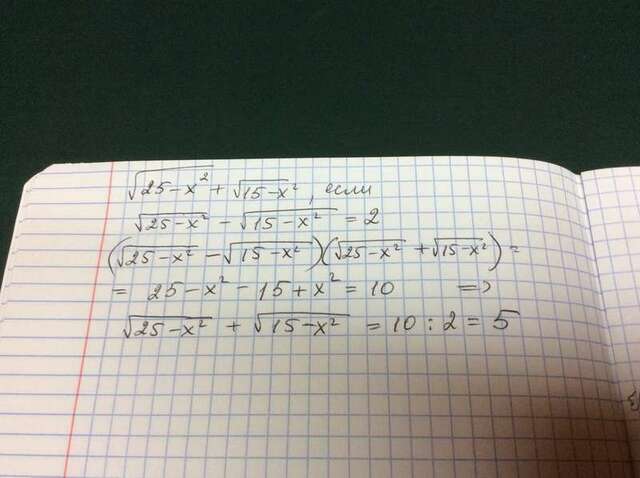 √25-x² + √15-x², если
√25-x² - √15-x² = 2
(√25-x² - √15-x²)(√25-x² + √15-x²) =
= 25-x² - 15+x² = 10 =>
√25-x² + √15-x² = 10 : 2 = 5